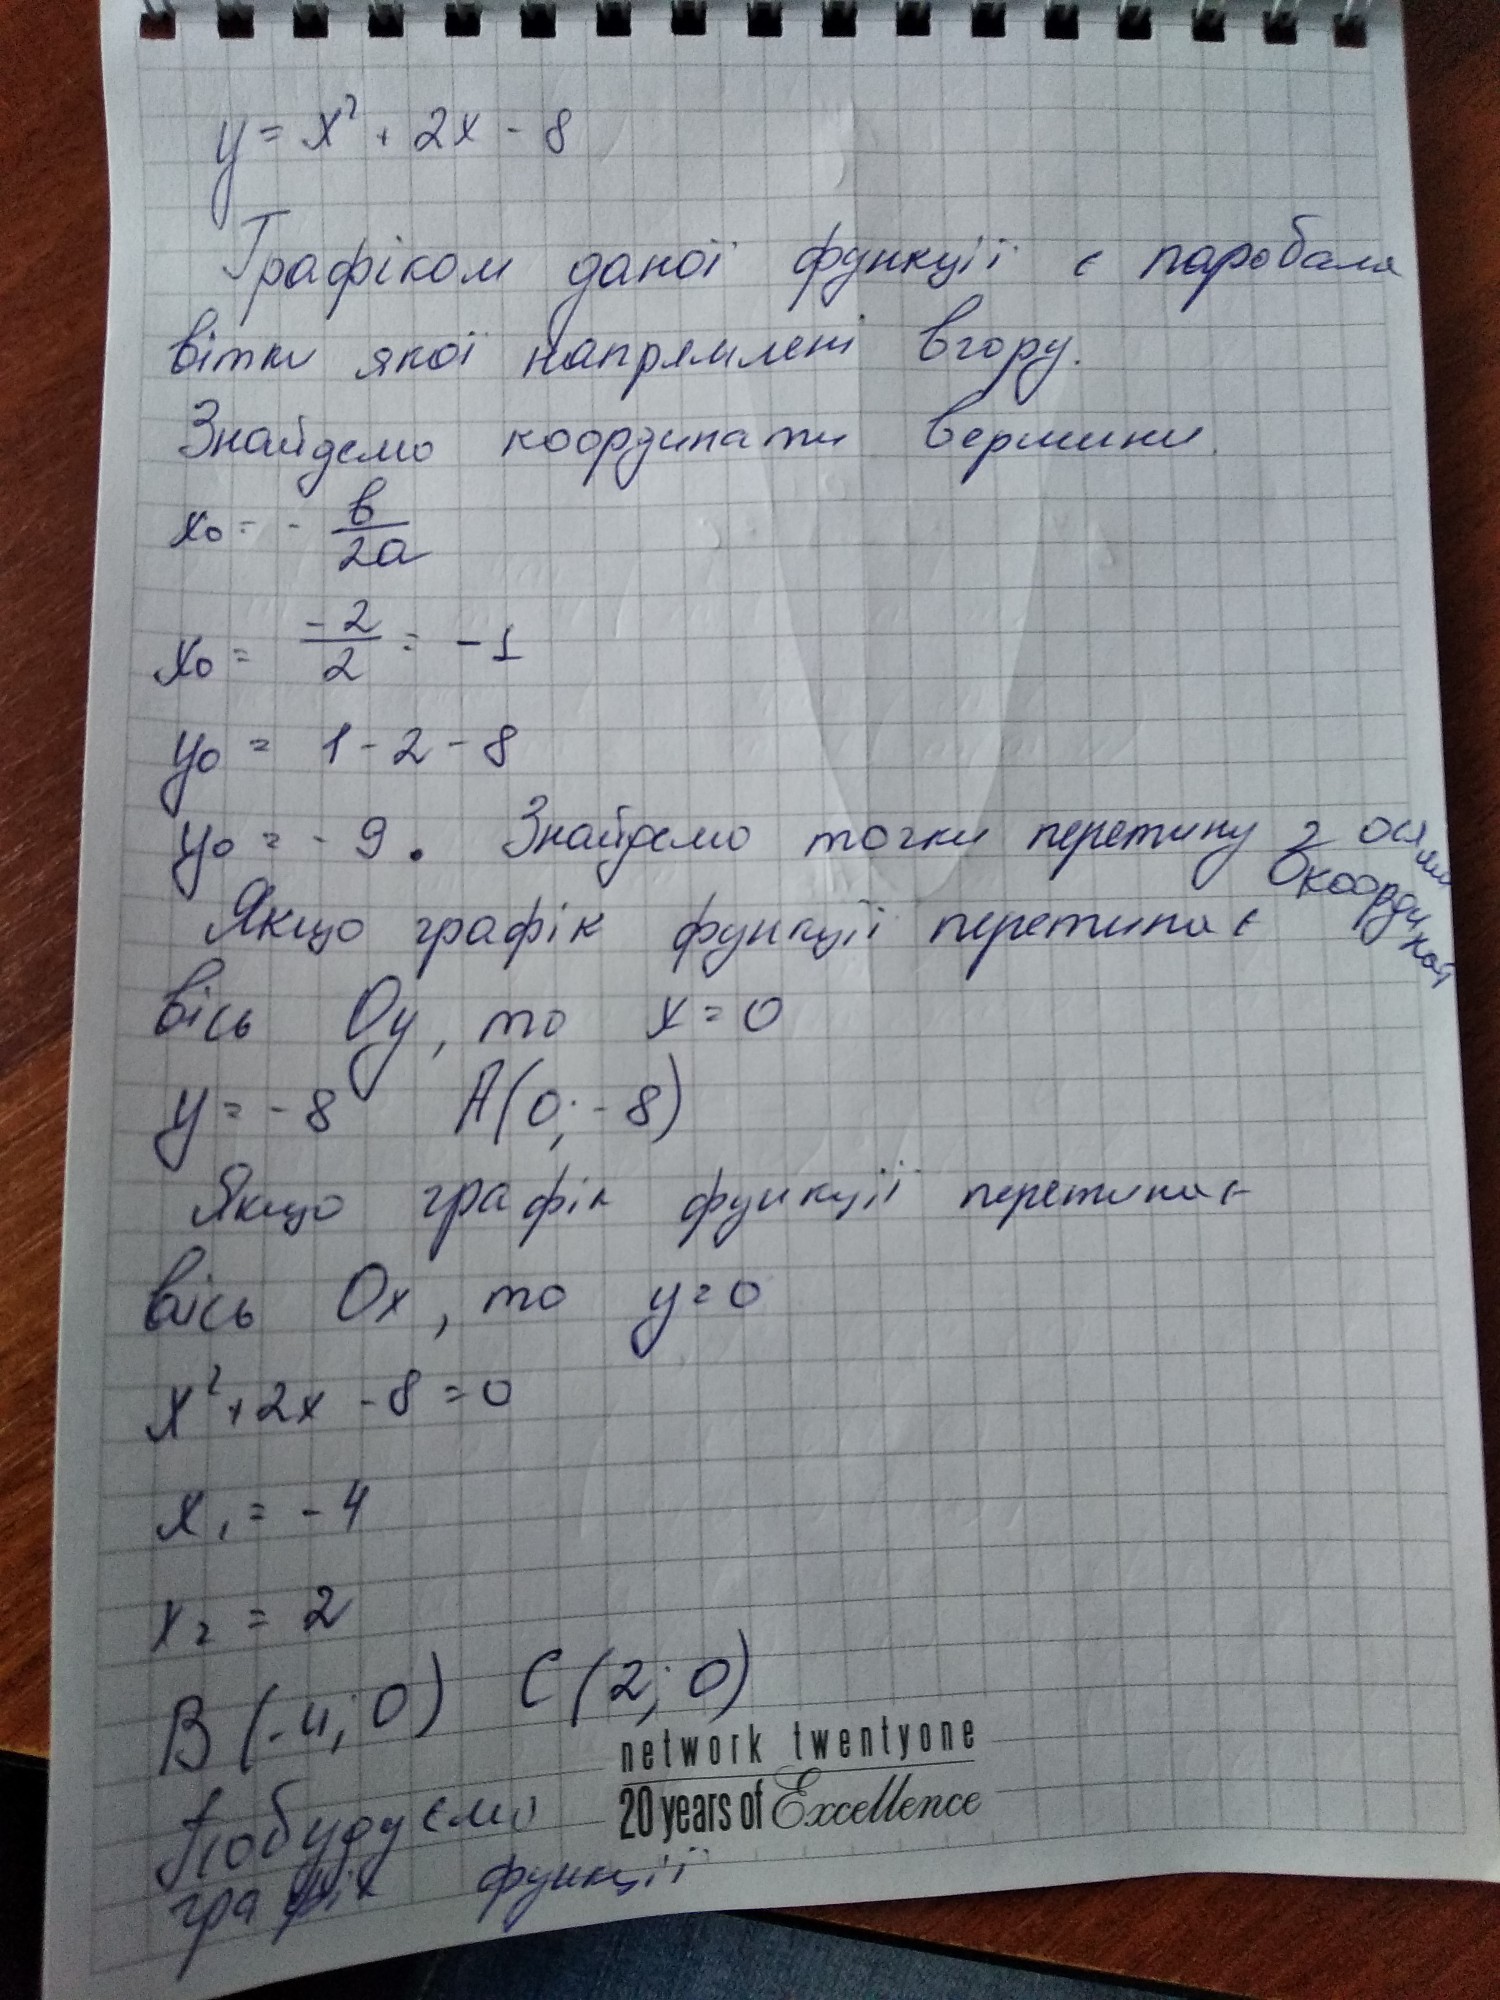 y = x² + 2x - 8
Графіком даної функції є паробала
вітки якої напрямлені вгору.
Знайдемо координати вершини.
x₀ = - в/2a
x₀ = -2/2 = -1
y₀ = 1 - 2 - 8
y₀ = - 9. Знайдемо точки перетину з осями координат
Якщо графік функції перетинає
вісь Oy, то x = 0
y = - 8 A(0; - 8)
Якщо графік функції перетинає
вісь Ox, то y = 0
x² + 2x - 8 = 0
x₁ = - 4
x₂ = 2
B (-4; 0) C (2; 0)
network twentyone
20 years of Excellence
Побудуємо
графік функції